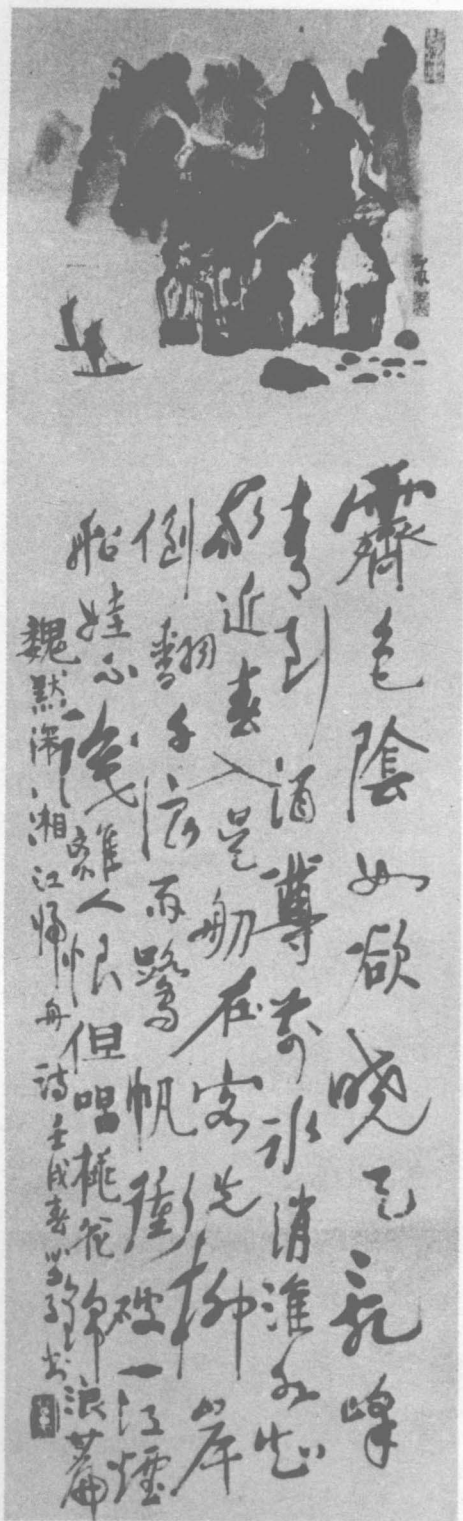 霽色陰如欲曉天亂峰
青到酒尊前冰消淮水知
家近春入吳舠在客先柳岸
倒翻千浪雨鷺帆衝破一江煙
船娃不識離人恨但唱桃花錦浪篇
魏默深湘江帰舟詩壬戌春 書